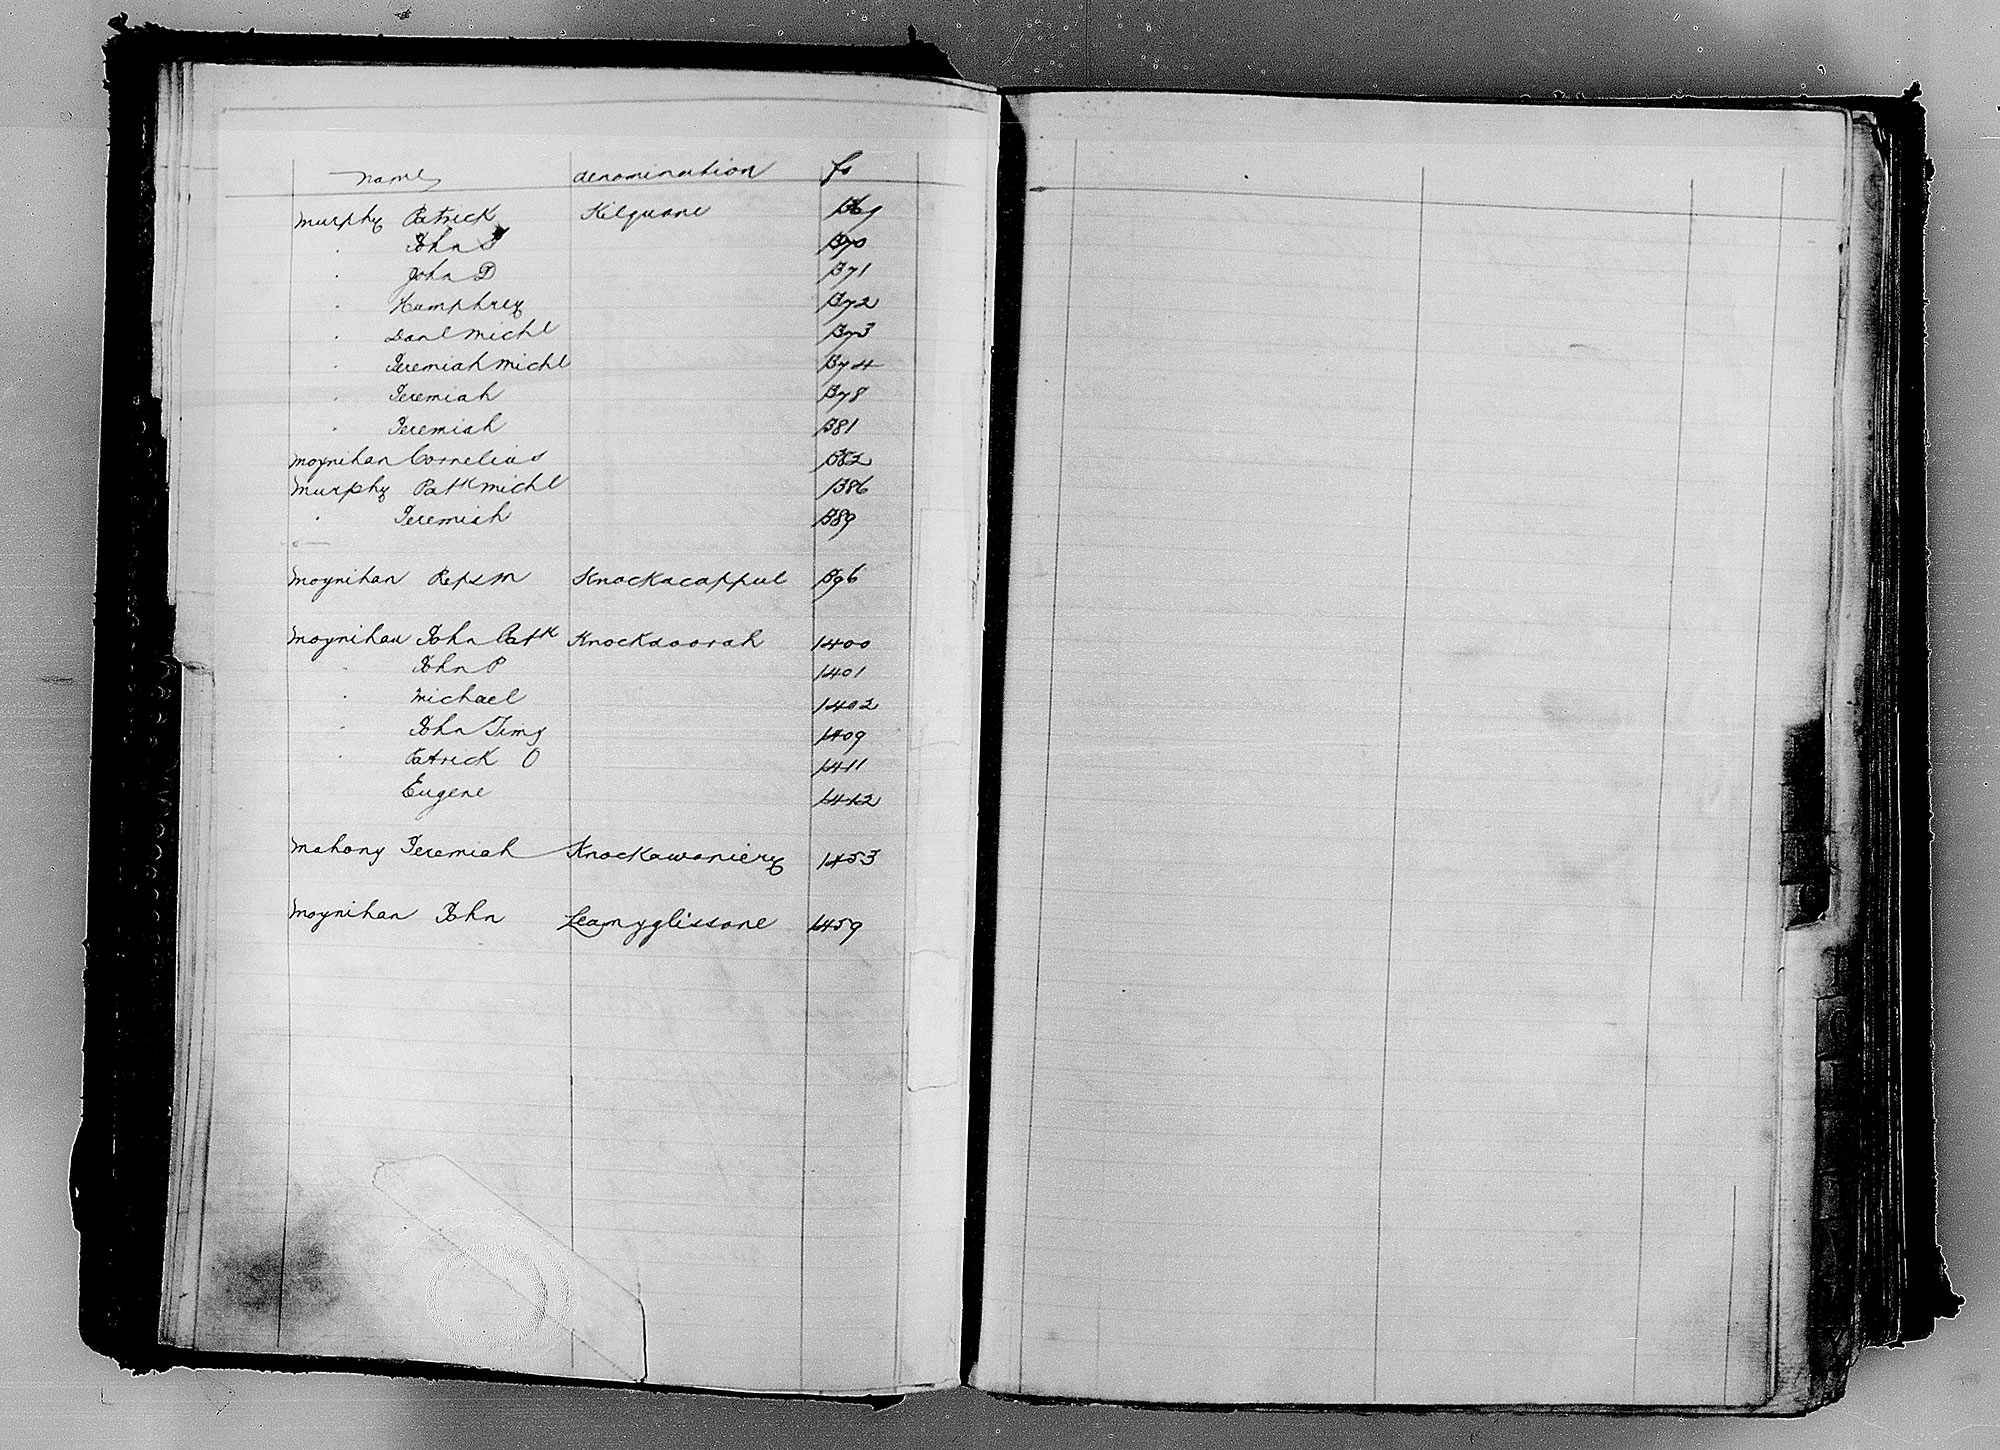 name denomination fo
Murphy Patrick Kilquane 1369
" John S 1370
" John D 1371
" Humphrey 1372
" Danl Michl 1373
" Jeremiah Michl 1374
" Jeremiah 1378
" Jeremiah 1381
Moynihan Cornelius 1382
Murphy Patk Michl 1386
" Jeremiah 1389
Moynihan Reps M Knockacappul 1396
Moynihan John Patk Knockdoorah 1400
" John P 1401
" Michael 1402
" John Timy 1409
" Patrick O 1411
Eugene 1412
Mahony Jeremiah Knockawaniery 1453
Moynihan John Leamyglissane 1459